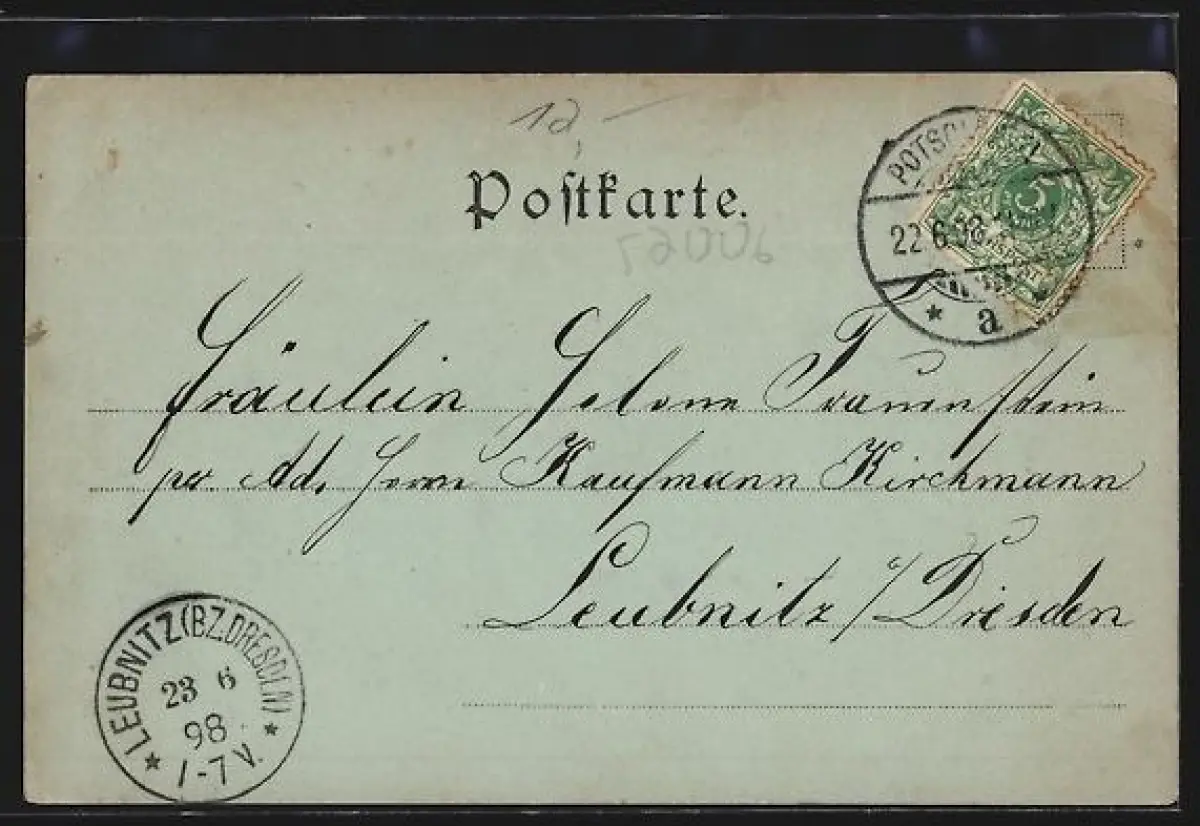 12,-
Postkarte.
F2006
POTSD
22.6.98
5
a
Fräulein Helene Trauenstein
pr. Ad. Herrn Kaufmann Kirchmann
Leubnitz / Dresden
LEUBNITZ (BZ. DRESDEN)
23 6
98
1-7 V.